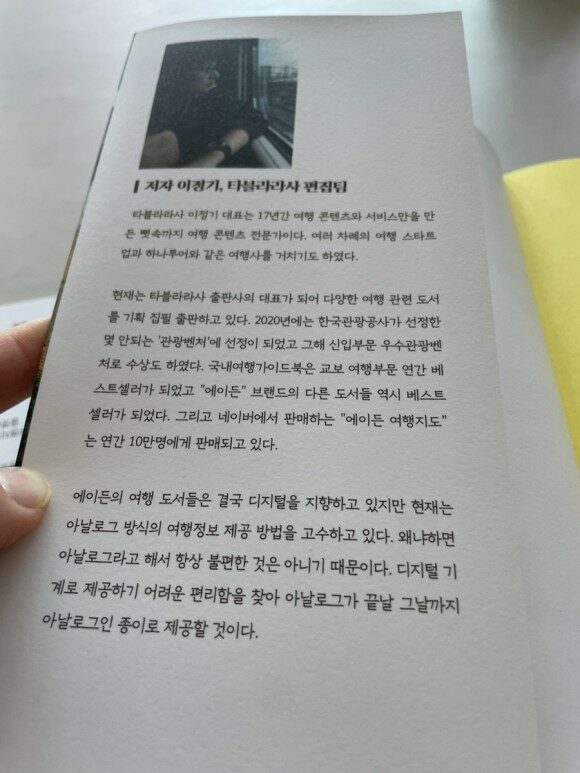 저자 이정기, 타블라라사 편집팀
타블라라사 이정기 대표는 17년간 여행 콘텐츠와 서비스만을 만
든 뼛속까지 여행 콘텐츠 전문가이다. 여러 차례의 여행 스타트
업과 하나투어와 같은 여행사를 거치기도 하였다.
현재는 타블라라사 출판사의 대표가 되어 다양한 여행 관련 도서
를 기획 집필 출판하고 있다. 2020년에는 한국관광공사가 선정한
몇 안되는 '관광벤처'에 선정이 되었고 그해 신입부문 우수관광벤
처로 수상도 하였다. 국내여행가이드북은 교보 여행부문 연간 베
스트셀러가 되었고 "에이든" 브랜드의 다른 도서들 역시 베스트
셀러가 되었다. 그리고 네이버에서 판매하는 "에이든 여행지도"
는 연간 10만명에게 판매되고 있다.
에이든의 여행 도서들은 결국 디지털을 지향하고 있지만 현재는
아날로그 방식의 여행정보 제공 방법을 고수하고 있다. 왜냐하면
아날로그라고 해서 항상 불편한 것은 아니기 때문이다. 디지털 기
계로 제공하기 어려운 편리함을 찾아 아날로그가 끝날 그날까지
아날로그인 종이로 제공할 것이다.